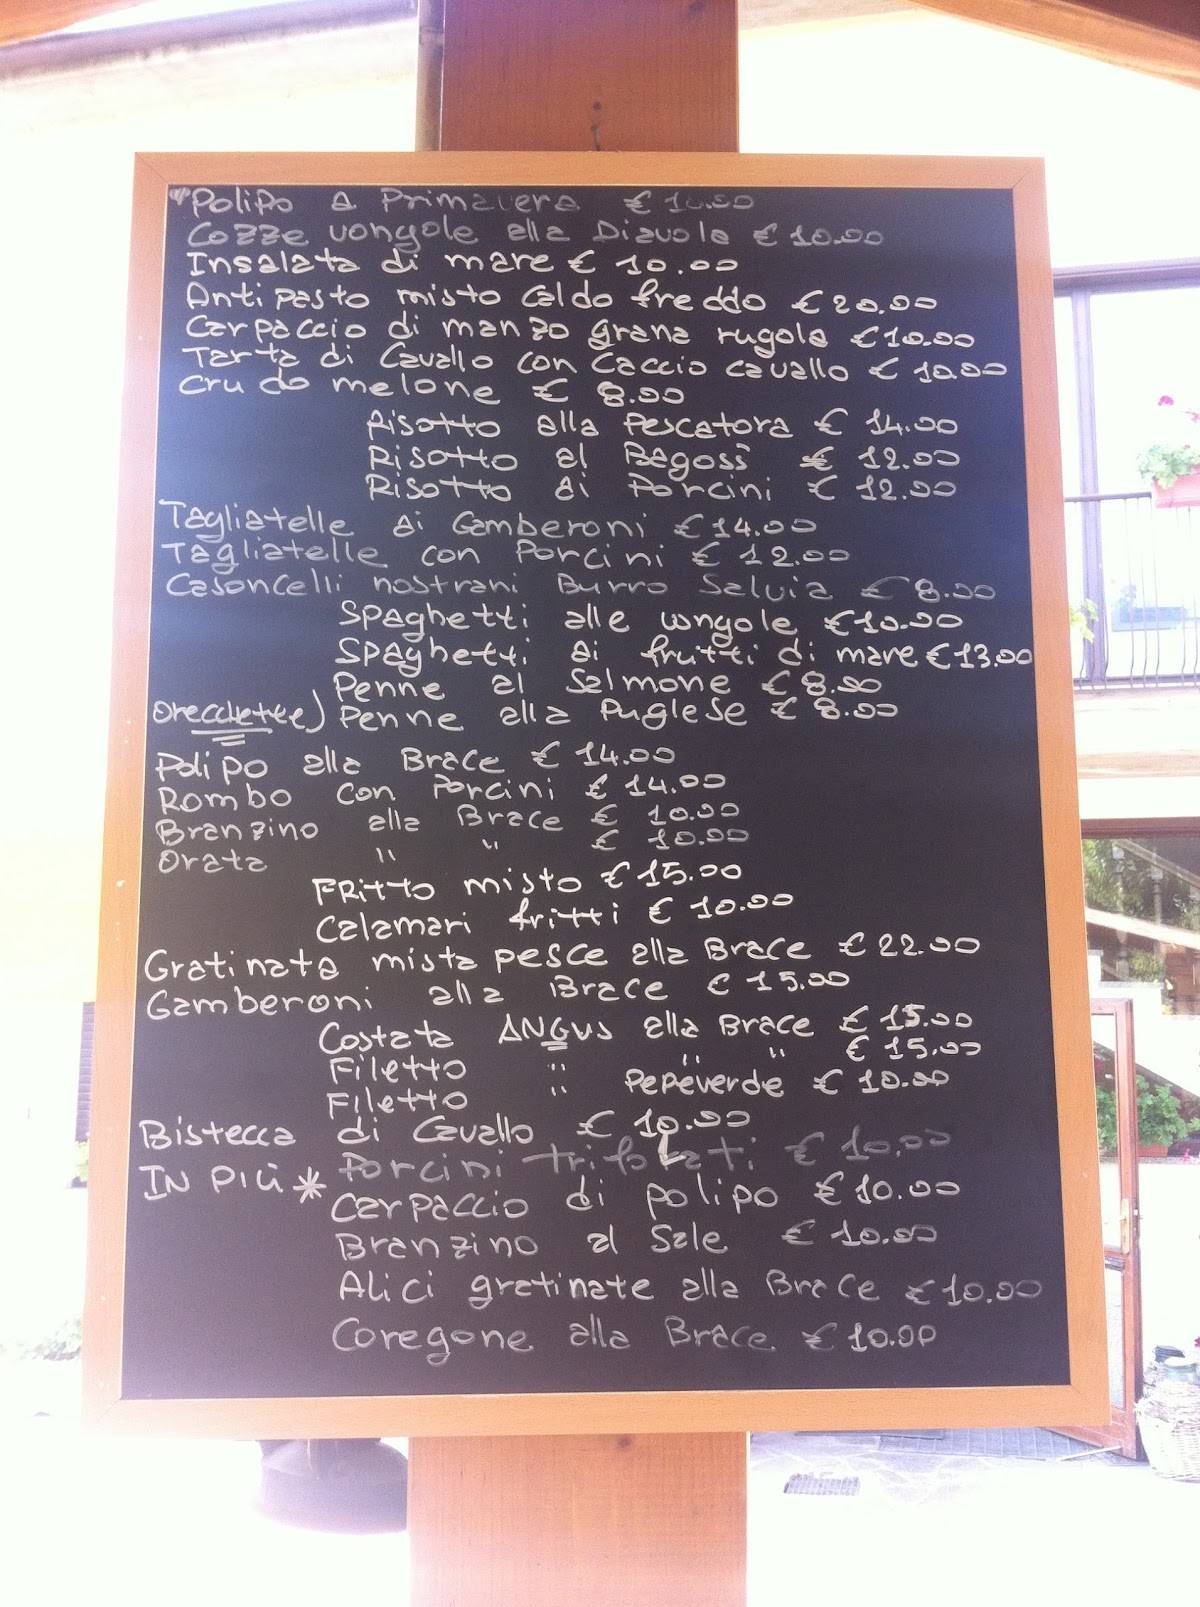 *Polipo a Primavera € 10.00
Cozze vongole alla Diavola € 10.00
Insalata di mare € 10.00
Antipasto misto Caldo freddo € 20.00
Carpaccio di manzo grana rugola € 10.00
Tarta di Cavallo con Caccio cavallo € 10.00
Crudo melone € 8.00
Risotto alla Pescatora € 14.00
Risotto al Bagoss € 12.00
Risotto ai Porcini € 12.00
Tagliatelle ai Gamberoni € 14.00
Tagliatelle con Porcini € 12.00
Casoncelli nostrani Burro Salvia € 8.00
Spaghetti alle vongole € 10.00
Spaghetti ai frutti di mare € 13.00
Penne al Salmone € 8.00
Orecchiette) Penne alla Puglese € 8.00
Polipo alla Brace € 14.00
Rombo con Porcini € 14.00
Branzino alla Brace € 10.00
Orata " " € 10.00
Fritto misto € 15.00
Calamari fritti € 10.00
Gratinata mista pesce alla Brace € 22.00
Gamberoni alla Brace € 15.00
Costata ANGUS alla Brace € 15.00
Filetto " " " € 15.00
Filetto " Pepeverde € 10.00
Bistecca di Cavallo € 10.00
IN PIÙ * Porcini trifolati € 10.00
Carpaccio di polipo € 10.00
Branzino al Sale € 10.00
Alici gratinate alla Brace € 10.00
Coregone alla Brace € 10.00